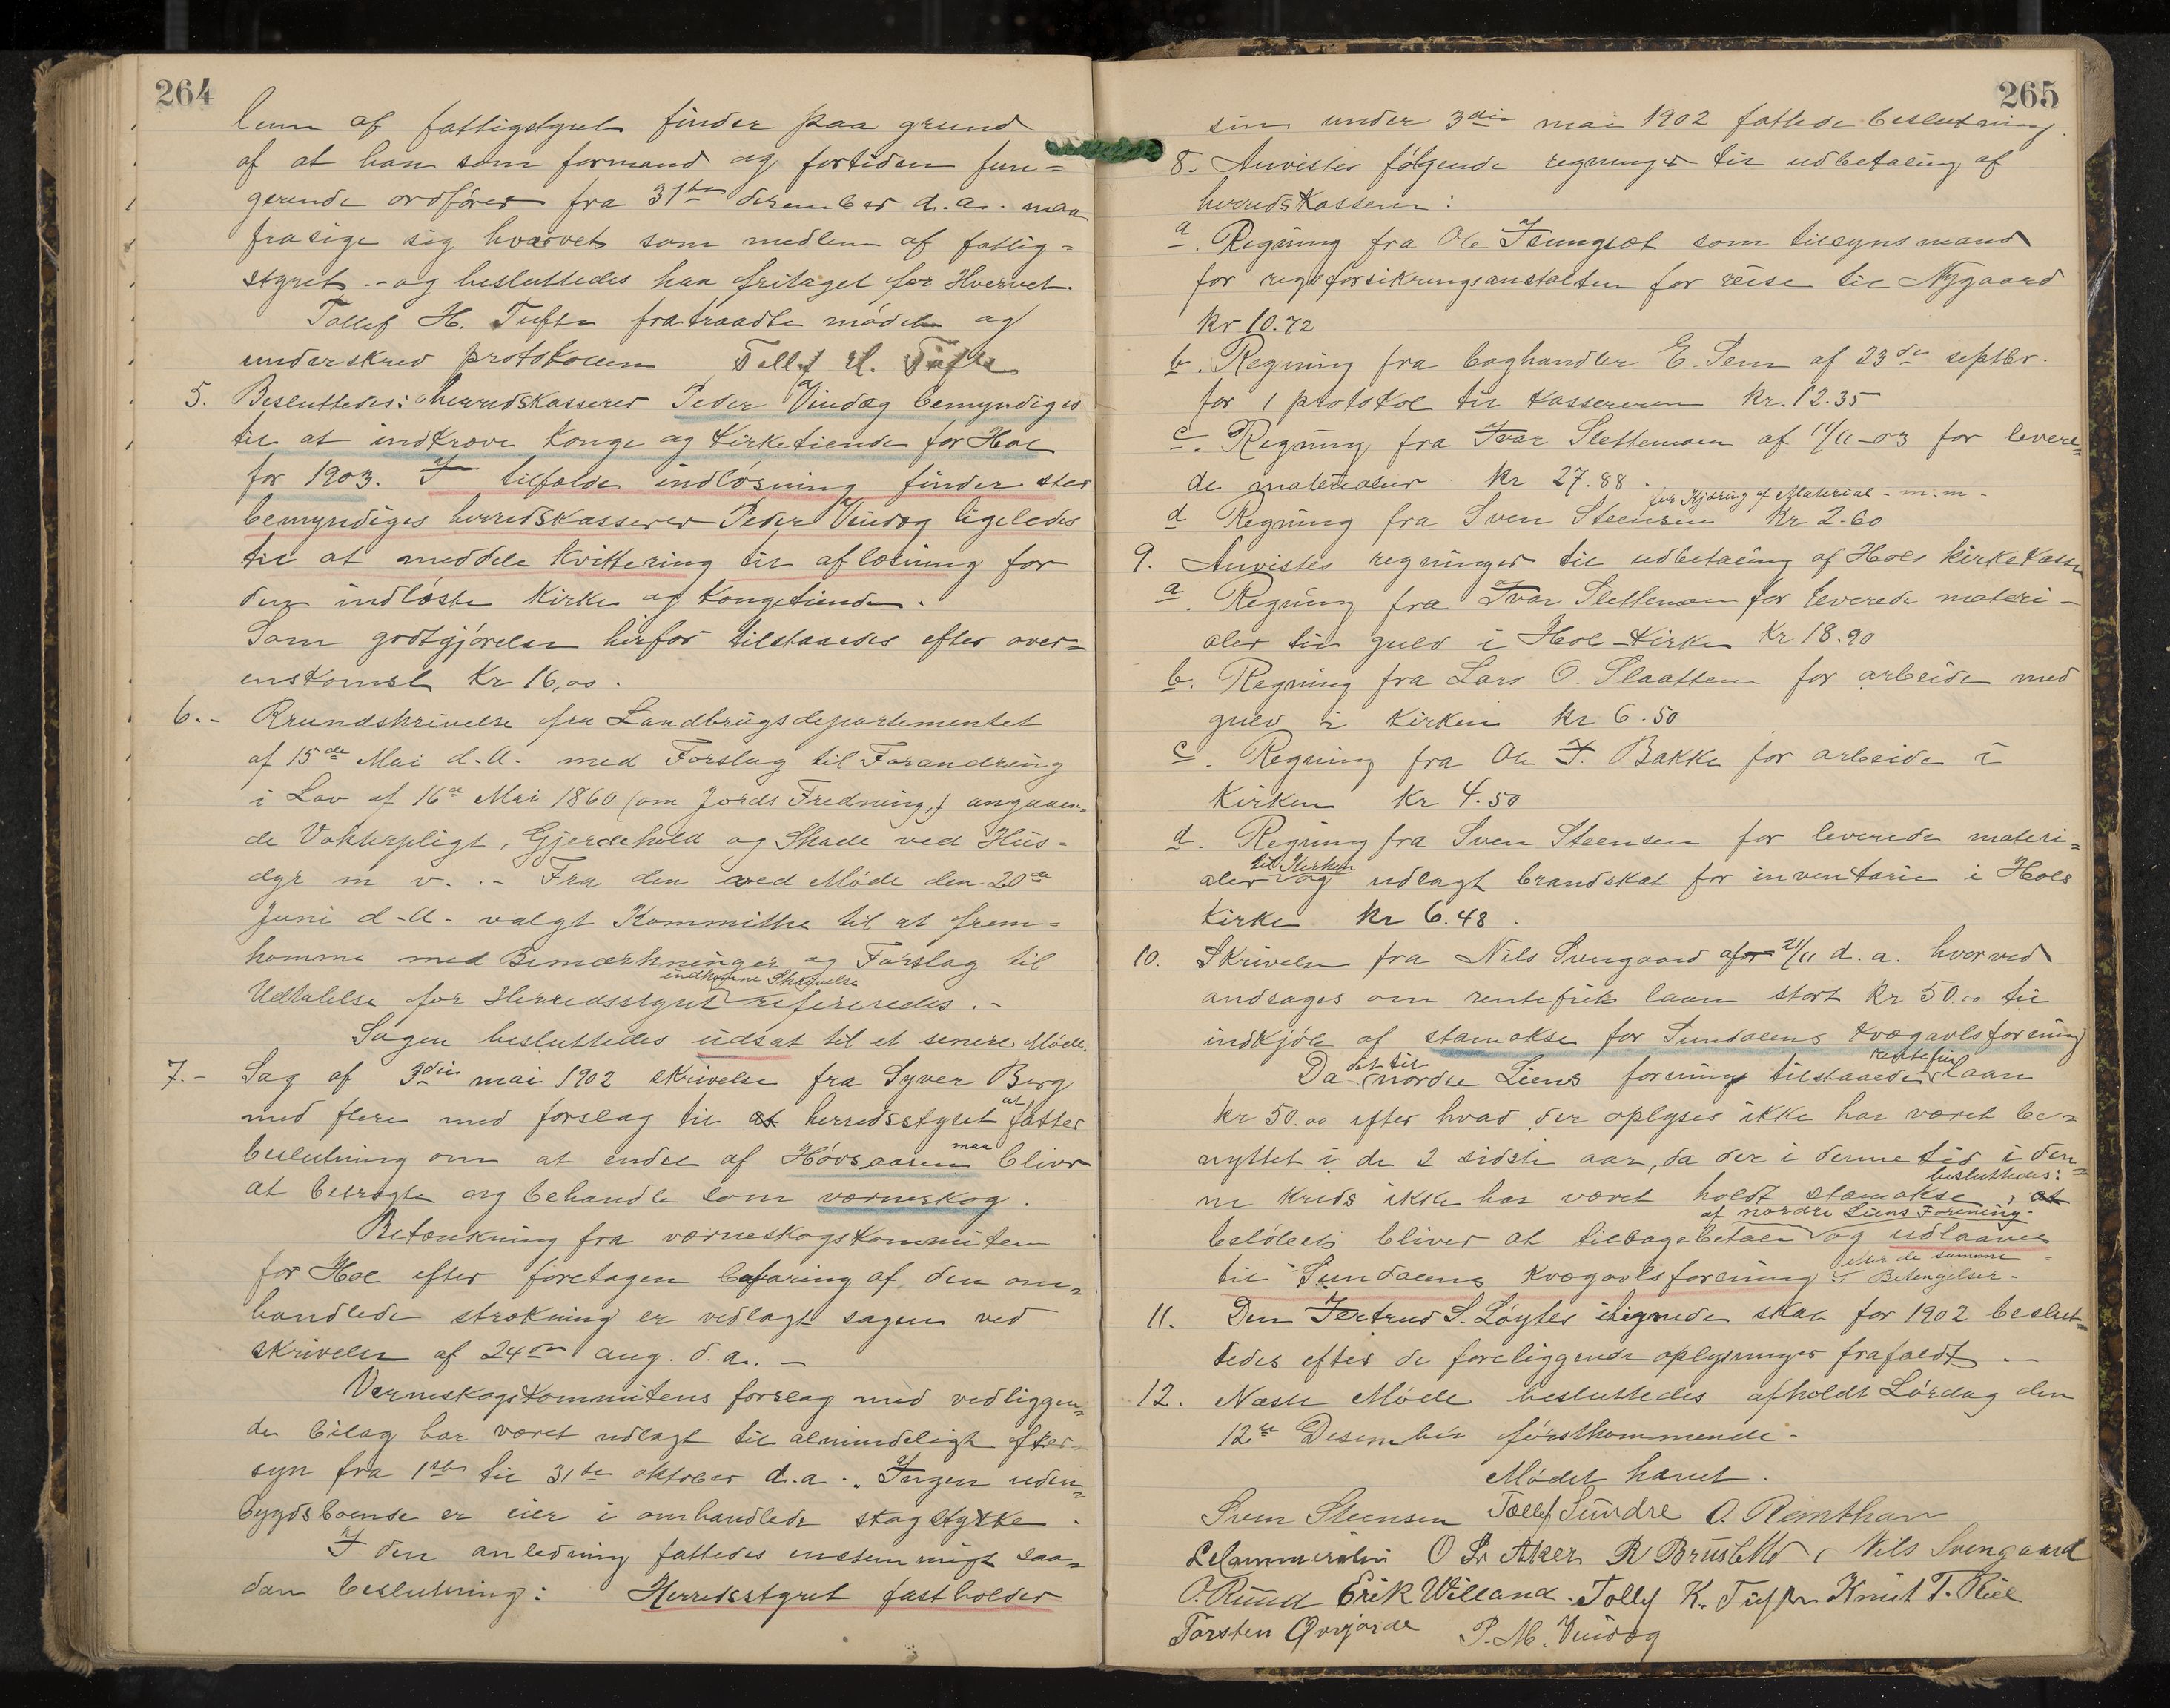 264
lem af fattigstyret finder paa grund
af at han som formand og fortiden fun=
gerende ordfører fra 31te desember d.a. maa
frasige sig hvervet som medlem af fattig=
styret.- og besluttedes han fritaget for Hvervet.
Tollef H. Tufte fratraadte mødet og
underskrev protokollen Tollef H. Tufte
5. Besluttedes: herredskasserer Peder Vindæg bemyndiges
til at indkræve konge og kirketiende for Hol
for 1903. I tilfælde indløsning finder sted
bemyndiges herredskasserer Peder Vindæg ligeledes
til at meddele kvittering til aflæsning for
den indløste kirke og kongetiende.
Som godtgjørelse herfor tilstaaedes efter over=
enskomst Kr 16,00.
6.- Rrundskrivelse fra Landbrugsdepartementet
af 15de Mai d.A. med Forslag til Forandring
i Lov af 16de Mai 1860 (om Jords Fredning,) angaaen=
de Vokterpligt, Gjerdehold og Skade ved Hus=
dyr m v. .- Fra den ved Møde den 20de
Juni d.A. valgt Kommitte til at frem=
komme med Bemærkninger og Forslag til
Udtalelse for Herredsstyret indkomne Skrivelse refereredes.-
Sagen besluttedes udsat til et senere Møde.
7.- Sag af 3die mai 1902 skrivelse fra Syver Berg
med flere med forslag til at herredsstyret at fatter
beslutning om at endel af Høvsaasen maa bliver
at betragte og behandle som værneskog.
Betænkning fra værneskogskommiteen
for Hol efter foretagen befaring af den om=
handlede strækning er vedlagt sagen ved
skrivelse af 24de aug. d.a. -
Værneskogskommitens forslag med vedliggen=
de bilag har været udlagt til almindeligt efter=
syn fra 1ste til 31te oktober d.a.. Ingen uden=
bygdsboende er eier i omhandlede skogstykke.
I den anledning fattedes enstemmigt saa=
dan beslutning: Herredsstyret fastholder
265
sin under 3die mai 1902 fattede beslutning.
8. Anvistes følgende regninger til udbetaling af
herredskassen:
a. Regning fra Ole Isungset som tilsynsmand
for rigsforsikringsanstalten for reise til Nygaard
kr 10.72
b. Regning fra boghandler E. Sem af 23de septbr.
for 1 protokol til kassereren Kr. 12.35
c. Regning fra Ivar Slettemoen af 11/11-03 for levere=
de materialer. Kr 27.88.
d Regning fra Sven Steensen for Kjøring af Material - m.m - Kr 2.60
9. Anvistes regninger til udbetaling af Hols kirkekasse
a. Regning fra Ivar Slettemoen for leverede materi-
aler til gulv i Hol-Kirke Kr 18.90
b. Regning fra Lars O. Slaatten for arbeide med
gulv i kirken kr 6.50
c. Regning fra Ole I. Bakke for arbeide i
Kirken Kr 4.50
d. Regning fra Sven Steensen for leverede materi=
aler til Kirken og udlagt brandskat for inventarie i Hols
kirke Kr 6.48.
10. Skrivelse fra Nils Svengaard af 21/11 d.a. hvorved
andrages om rentefrit laan stort Kr 50.00 til
indkjøb af stamokse for Sundalens kvægavlsforening
Da det til nordre Liens forening tilstaaede rentefri laan
kr 50.00 efter hvad der oplyses ikke har været be=
nyttet i de 2 sidste aar, da der i denne tid i den=
ne kreds ikke har været holdt stamokse, besluttedes: at
beløbet bliver at tilbagebetale af nordre Liens Forening. og udlaanes
til Sundalens kvægavlsforening efter de samme Betingelser.
11. Den Jertrud S. Løytes ilignede skat for 1902 beslut=
tedes efter de foreliggende oplysninger frafaldt. -
12. Næste Møde besluttedes afholdt Lørdag den
12te Desember førstkommende.
Mødet hævet.
Sven Steensen Tollef Sundre O. Reinthon
O Sr Aker R Brusletto Nils Svengaard
O. Ruud Erik Villand. Tollef K. Tufte Knut T. Riil
Torsten Øvrjorde P. M. Vindæg